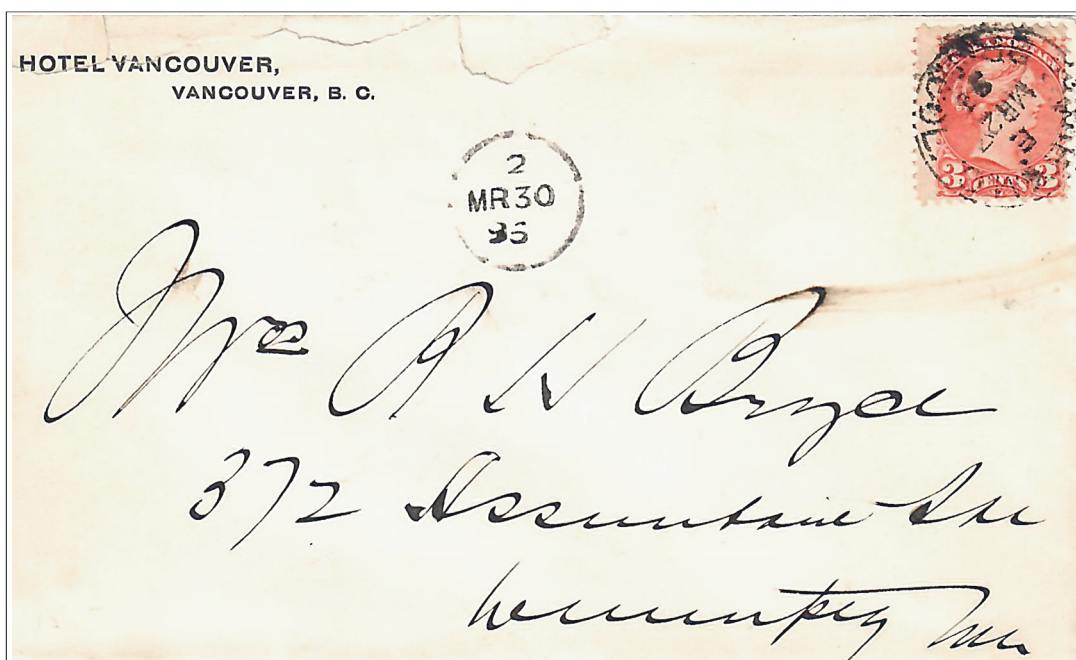 HOTEL VANCOUVER,
VANCOUVER, B. C.
2
MR 30
95
3 CENTS 3
Mrs R H Bryce
372 Assiniboine Ave
Winnipeg Mn